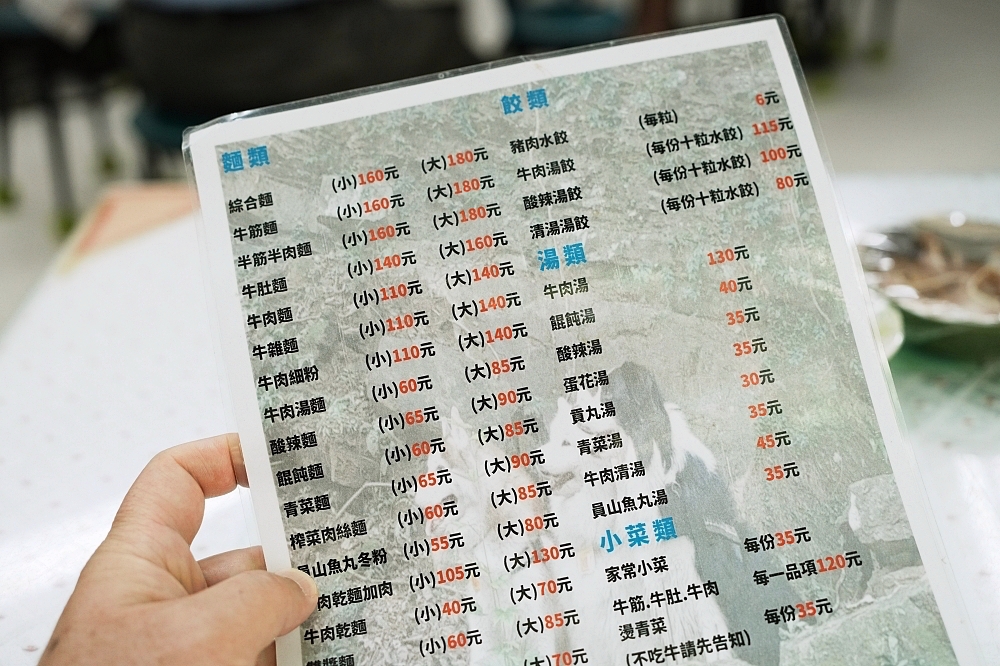 麵類
綜合麵 (小)160元 (大)180元
牛筋麵 (小)160元 (大)180元
半筋半肉麵 (小)160元 (大)180元
牛肚麵 (小)140元 (大)160元
牛肉麵 (小)110元 (大)140元
牛雜麵 (小)110元 (大)140元
牛肉細粉 (小)110元 (大)140元
牛肉湯麵 (小)60元 (大)85元
酸辣麵 (小)65元 (大)90元
餛飩麵 (小)60元 (大)85元
青菜麵 (小)65元 (大)90元
榨菜肉絲麵 (小)60元 (大)85元
員山魚丸冬粉 (小)55元 (大)80元
肉乾麵加肉 (小)105元 (大)130元
牛肉乾麵 (小)40元 (大)70元
雙醬麵 (小)60元 (大)85元
(大)70元
餃類
豬肉水餃 (每粒) 6元
牛肉湯餃 (每份十粒水餃) 115元
酸辣湯餃 (每份十粒水餃) 100元
清湯湯餃 (每份十粒水餃) 80元
湯類
牛肉湯 130元
餛飩湯 40元
酸辣湯 35元
蛋花湯 35元
貢丸湯 30元
青菜湯 35元
牛肉清湯 45元
員山魚丸湯 35元
小菜類
家常小菜 每份35元
牛筋.牛肚.牛肉 每一品項120元
燙青菜 每份35元
(不吃牛請先告知)